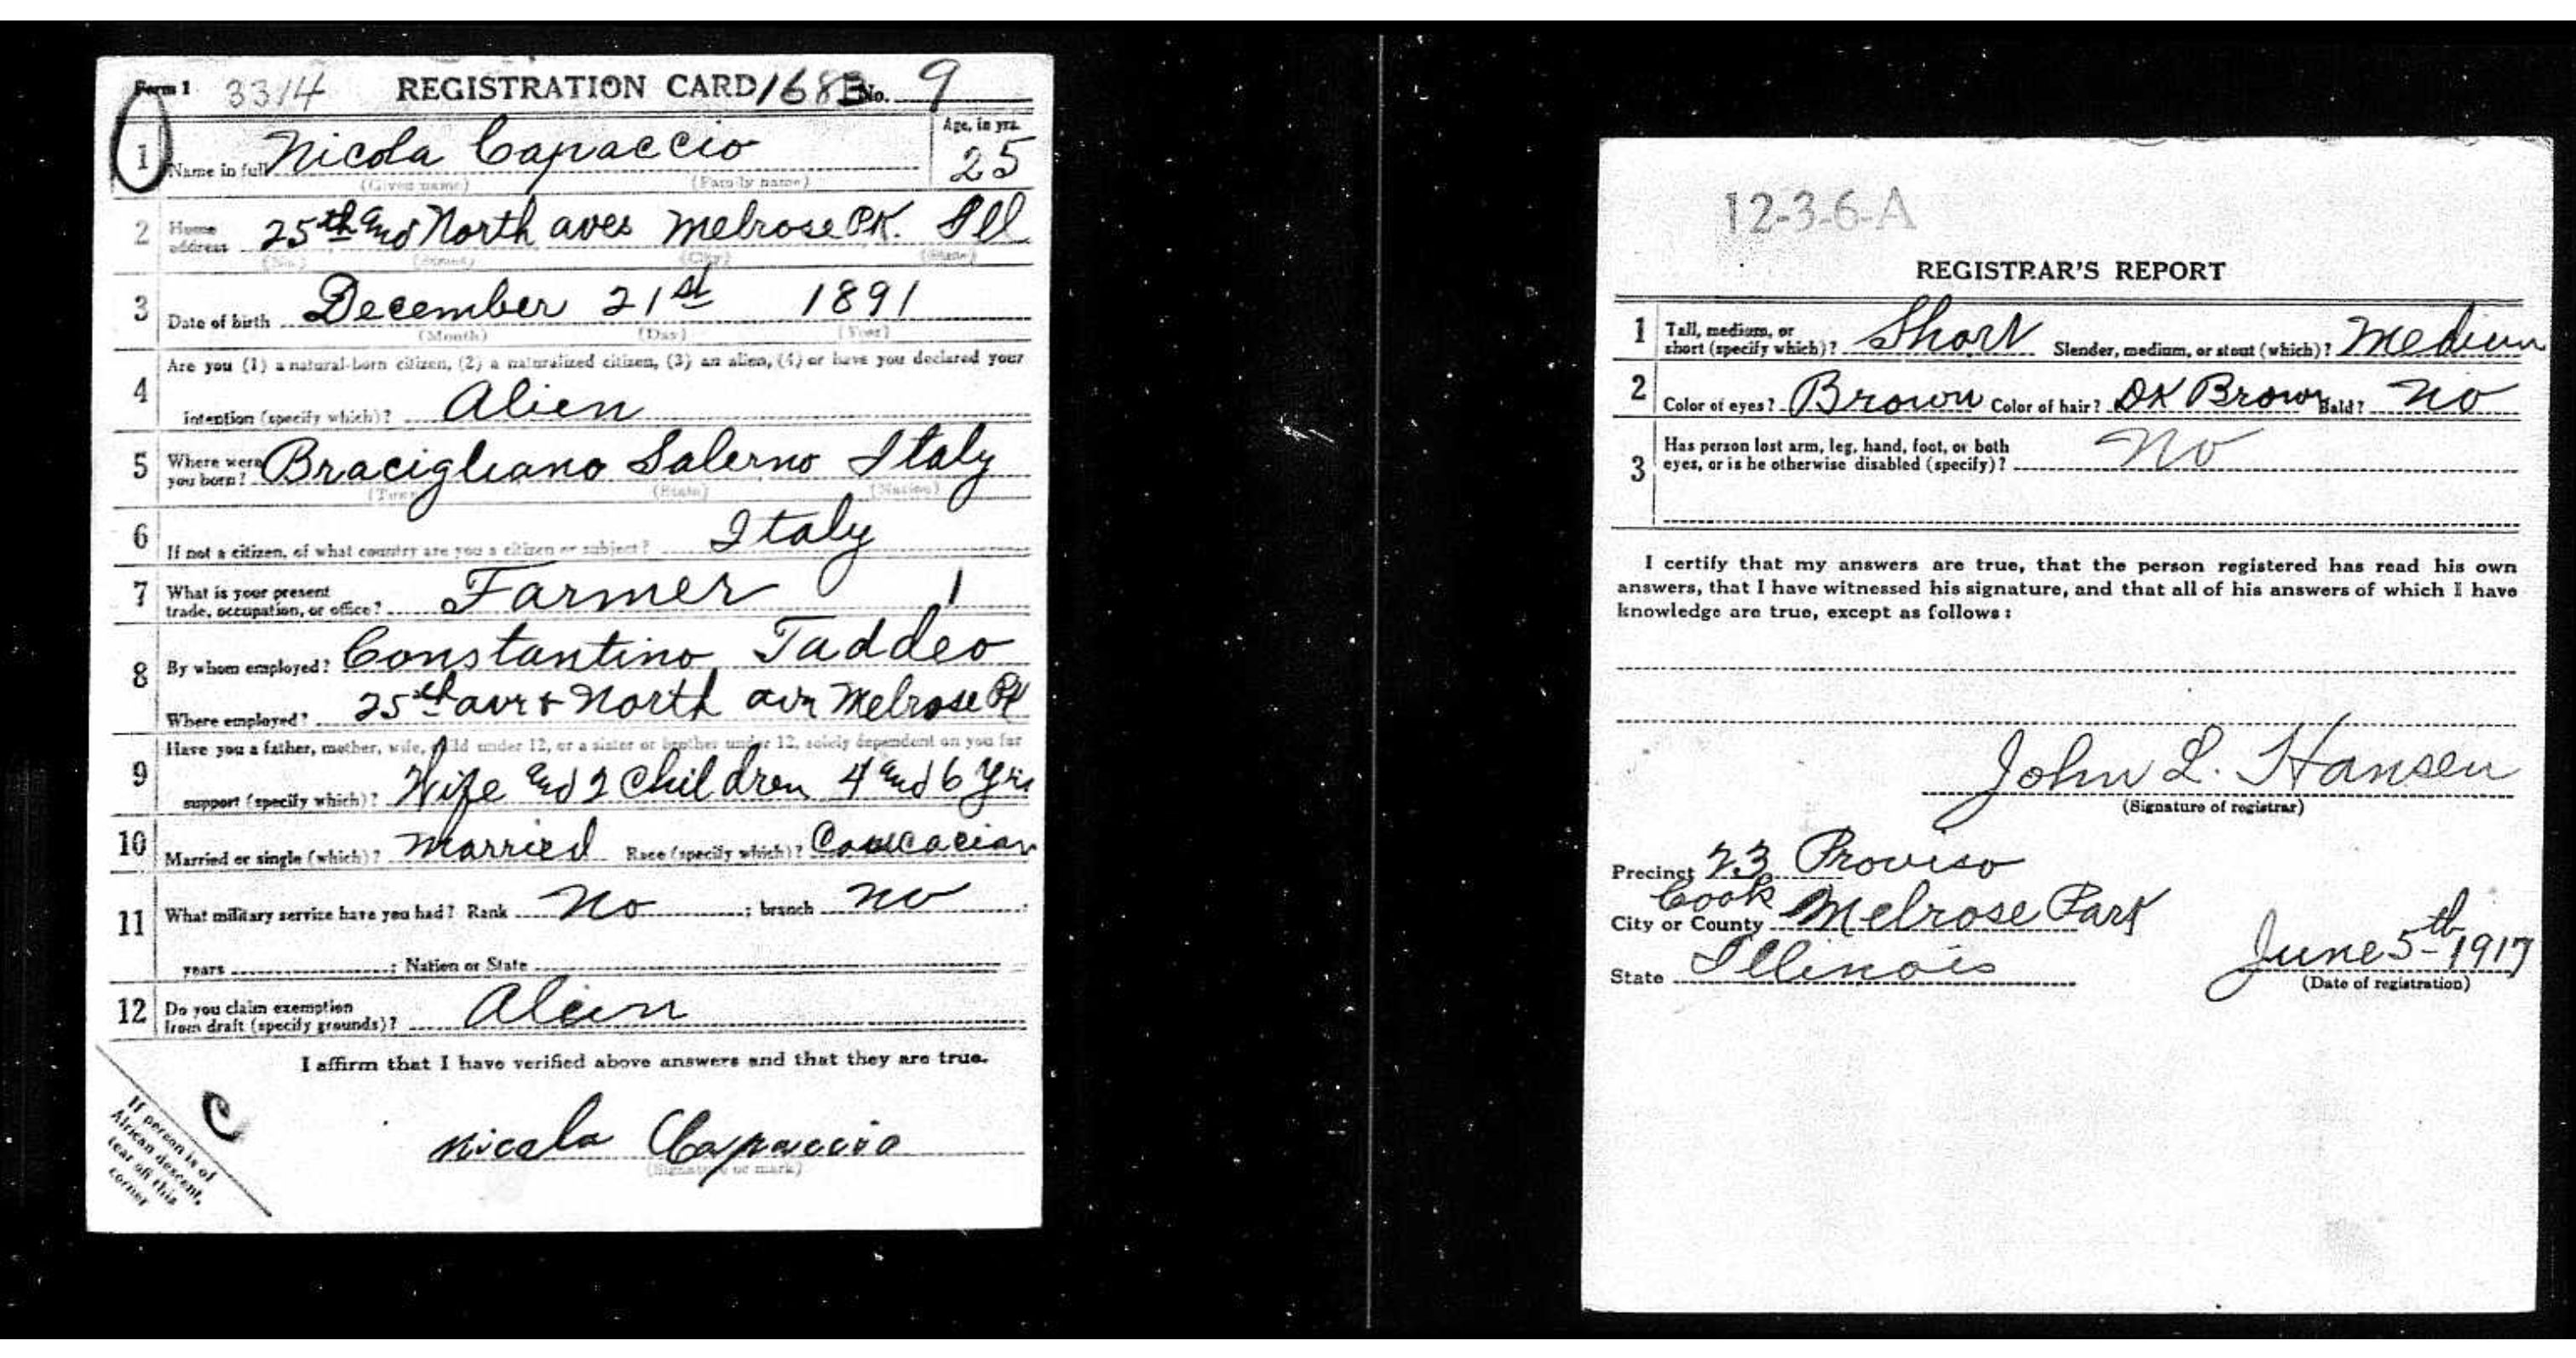 Form 1 3314 REGISTRATION CARD 1683 No. 9
1 Name in full Nicola Capaccio Age, in yrs. 25
(Given name) (Family name)
2 Home address 25th and North aves Melrose PK. Ill
(No.) (Street) (City) (State)
3 Date of birth December 21st 1891
(Month) (Day) (Year)
4 Are you (1) a natural-born citizen, (2) a naturalized citizen, (3) an alien, (4) or have you declared your
intention (specify which)? Alien
5 Where were you born? Bracigliano Salerno Italy
(Town) (State) (Nation)
6 If not a citizen, of what country are you a citizen or subject? Italy
7 What is your present
trade, occupation, or office? Farmer 1
8 By whom employed? Constantino Taddeo
Where employed? 25th ave & North ave Melrose Pk
9 Have you a father, mother, wife, child under 12, or a sister or brother under 12, solely dependent on you for
support (specify which)? Wife and 2 Children 4 and 6 Yrs
10 Married or single (which)? Married Race (specify which)? Caucacian
11 What military service have you had? Rank No ; branch no
years ; Nation or State
12 Do you claim exemption
from draft (specify grounds)? Alein
I affirm that I have verified above answers and that they are true.
Nicola Capaccio
(Signature or mark)
C
If person is of
African descent,
tear off this
corner
12-3-6-A
REGISTRAR'S REPORT
1 Tall, medium, or
short (specify which)? Short Slender, medium, or stout (which)? Medium
2 Color of eyes? Brown Color of hair? DK Brown Bald? No
3 Has person lost arm, leg, hand, foot, or both
eyes, or is he otherwise disabled (specify)? No
I certify that my answers are true, that the person registered has read his own
answers, that I have witnessed his signature, and that all of his answers of which I have
knowledge are true, except as follows:
John L. Hansen
(Signature of registrar)
Precinct 23 Proviso
Cook
City or County Melrose Park
State Illinois
June 5th-1917
(Date of registration)